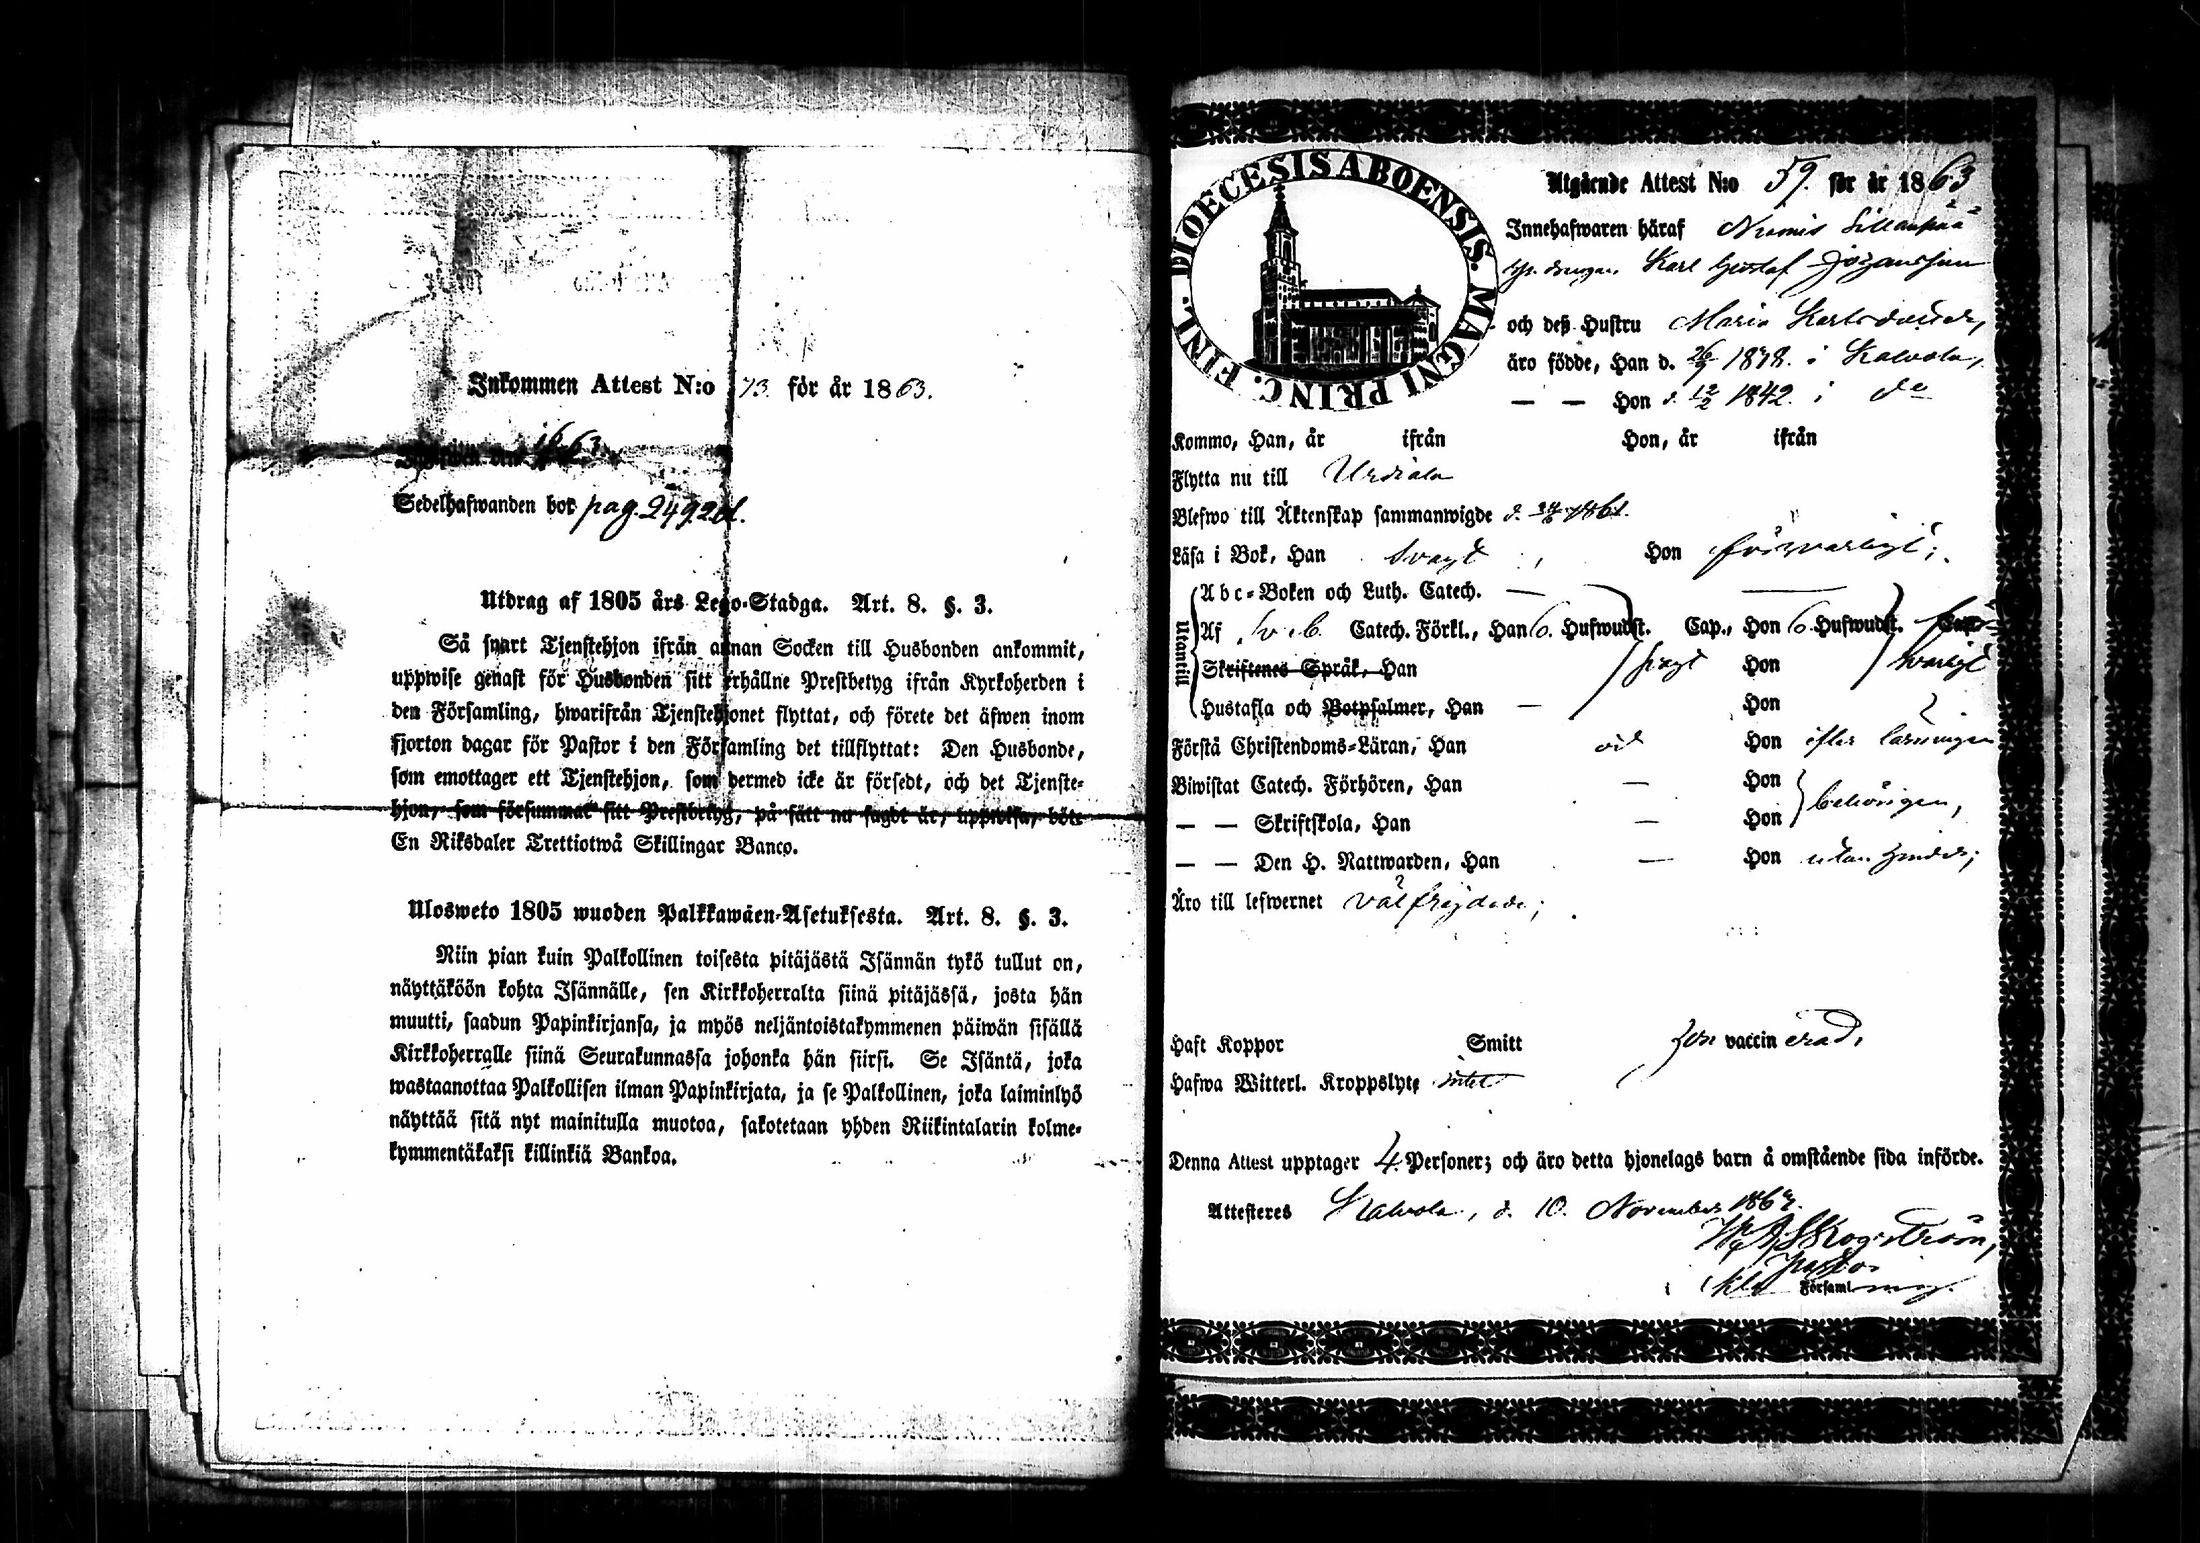 Inkommen Attest N:o 73. för år 1863.
Sedelhafwanden bor pag. 249
Utdrag af 1805 års Lego-Stadga. Art. 8. §. 3.
Så snart Tjenstehjon ifrån annan Socken till Husbonden ankommit,
uppwise genast för Husbonden sitt erhållne Prestbetyg ifrån Kyrkoherden i
den Församling, hwarifrån Tjenstehjonet flyttat, och förete det äfwen inom
fjorton dagar för Pastor i den Församling det tillflyttat: Den Husbonde,
som emottager ett Tjenstehjon, som dermed icke är försedt, och det Tjenste-
hjon, som försummar sitt Prestbetyg, på sätt nu sagdt är, uppwisa, böte
En Riksdaler Trettiotwå Skillingar Banco.
Ulosweto 1805 wuoden Palkkawäen-Asetuksesta. Art. 8. §. 3.
Niin pian kuin Palkollinen toisesta pitäjästä Isännän tykö tullut on,
näyttäköön kohta Isännälle, sen Kirkkoherralta siinä pitäjässä, josta hän
muutti, saadun Papinkirjansa, ja myös neljäntoistakymmenen päiwän sisällä
Kirkkoherralle siinä Seurakunnassa johonka hän siirsi. Se Isäntä, joka
wastaanottaa Palkollisen ilman Papinkirjata, ja se Palkollinen, joka laiminlyö
näyttää sitä nyt mainitulla muotoa, sakotetaan yhden Riikintalarin kolme-
kymmentäkaksi killinkiä Bankoa.
FINL. DIOECESIS ABOENSIS. MAGNI PRINC.
Utgående Attest N:o 59. för år 1863
Innehafwaren häraf Niemis Sillanpää
drengen Karl Gustaf Johansson
och deß Hustru Maria Karlsdotter,
äro födde, Han d. 26/9 1838. i Kalvola,
— — Hon d. 12/2 1842. i do
Kommo, Han, år ifrån Hon, år ifrån
Flytta nu till Urdiala
Blefwo till Äktenskap sammanwigde d. 1861.
Läsa i Bok, Han svagt, Hon försvarligt;
Utantill
Abc-Boken och Luth. Catech. — —
Af Sv. b. Catech. Förkl., Han 6. Hufwudst. Cap., Hon 6. Hufwudst. Cap. för-
Skriftenes Språk, Han svagt Hon svarligt
Hustafla och Botpsalmer, Han — Hon
Förstå Christendoms-Läran, Han och Hon efter läsningen
Biwistat Catech. Förhören, Han — Hon
— — Skriftskola, Han — Hon behörigen,
— — Den H. Nattwarden, Han — Hon utan hinder;
Äro till lefwernet välfrejdade;
Haft Koppor Smitt Hon vaccinerad,
Hafwa Witterl. Kroppslyte intet
Denna Attest upptager 4 Personer; och äro detta hjonelags barn å omstående sida införde.
Attesteres Kalvola, d. 10. November 1863.
Skogström,
Pastor
i Församling.